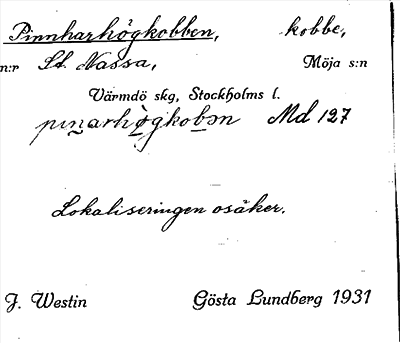 Pinnharhögkobben, kobbe,
n:r St. Nassa, Möja s:n
Värmdö skg, Stockholms l.
pınarhögkobən Md 127
Lokaliseringen osäker.
J. Westin Gösta Lundberg 1931